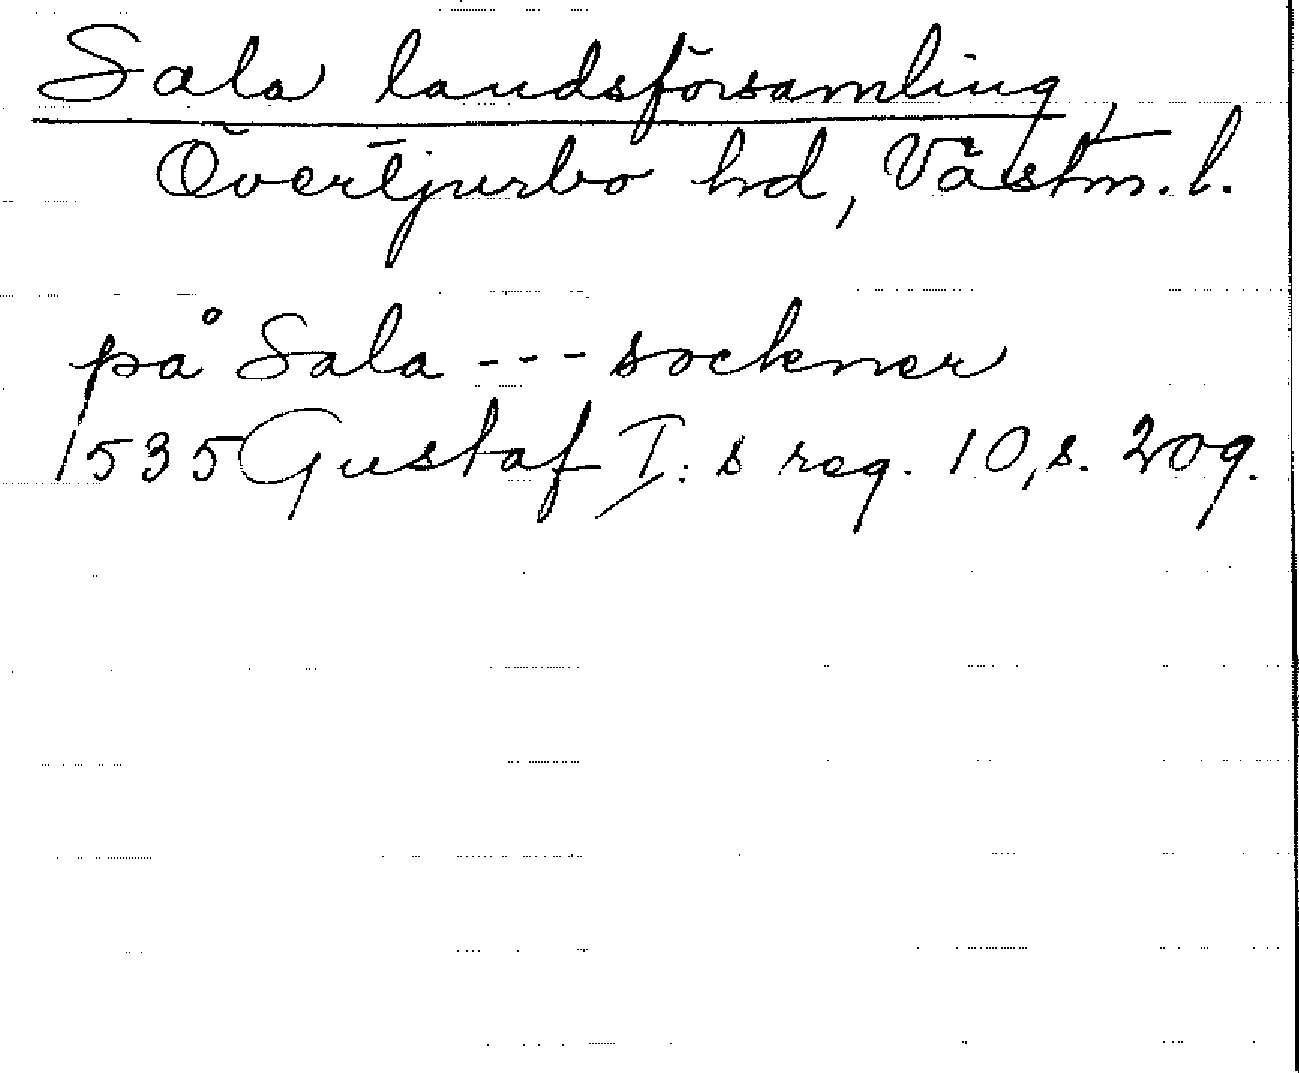 Sala landsförsamling,
Övertjurbo hd, Västm. l.
på Sala --- sockner
1535 Gustaf I:s reg. 10, s. 209.